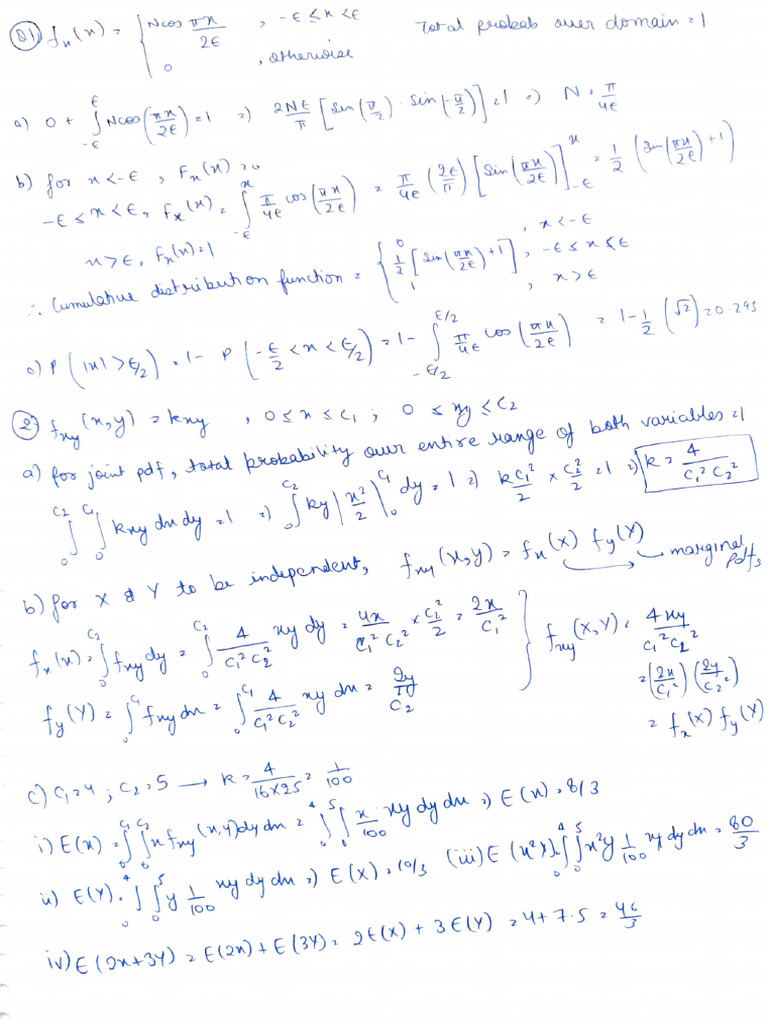 Q1) fx(x) = { Ncos πx/2ε , -ε ≤ x < ε Total probab over domain = 1
0 , otherwise
a) 0 + ∫_{-ε}^{ε} Ncos(πx/2ε) = 1 ⇒ 2Nε/π [sin(π/2) - sin(-π/2)] = 1 ⇒ N = π/4ε
b) for x < -ε , Fx(x) = 0
-ε ≤ x < ε, Fx(x) = ∫_{-ε}^{x} π/4ε cos(πx/2ε) = π/4ε (2ε/π) [sin(πx/2ε)]_{-ε}^{x} = 1/2 (sin(πx/2ε) + 1)
x > ε, Fx(x) = 1
∴ Cumulative distribution function = { 0 , x < -ε
1/2 [sin(πx/2ε) + 1] , -ε ≤ x ≤ ε
1 , x > ε
c) P(|x| > ε/2) = 1 - P(-ε/2 < x < ε/2) = 1 - ∫_{-ε/2}^{ε/2} π/4ε cos(πx/2ε) = 1 - 1/2 (√2) = 0.293
② fxy(x,y) = kxy , 0 ≤ x ≤ c1 ; 0 ≤ y ≤ c2
a) for joint pdf, total probability over entire range of both variables = 1
∫_0^{c2} ∫_0^{c1} kxy dx dy = 1 ⇒ ∫_0^{c2} ky |x²/2|_0^{c1} dy = 1 ⇒ kc1²/2 × c2²/2 = 1 ⇒ k = 4/c1²c2²
b) for X & Y to be independent, fxy(x,y) = fx(X) fy(Y) → marginal pdfs
fx(x) = ∫_0^{c2} fxy dy = ∫_0^{c2} 4/c1²c2² xy dy = 4x/c1²c2² × c2²/2 = 2x/c1²
fy(Y) = ∫_0^{c1} fxy dx = ∫_0^{c1} 4/c1²c2² xy dx = 2y/c2
} fxy(X,Y) = 4xy/c1²c2²
= (2x/c1²) (2y/c2²)
= fx(X) fy(Y)
c) c1 = 4 ; c2 = 5 → k = 4/16×25 = 1/100
i) E(x) = ∫_0^{c1} ∫_0^{c2} x fxy(x,y) dy dx = ∫_0^4 ∫_0^5 x/100 xy dy dx ⇒ E(x) = 8/3
ii) E(Y) = ∫_0^4 ∫_0^5 y 1/100 xy dy dx ⇒ E(X) = 10/3 (iii) E(x²Y) = ∫_0^4 ∫_0^5 x²y 1/100 xy dy dx = 80/3
iv) E(2x+3Y) = E(2x) + E(3Y) = 2E(x) + 3E(Y) = 4 + 7.5 = 46/3